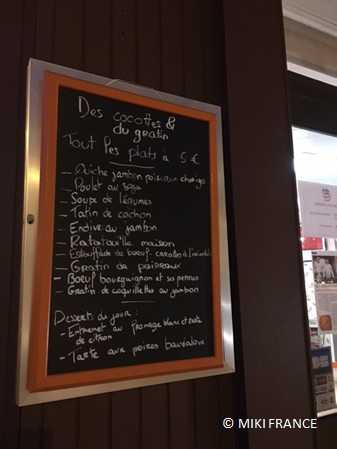 Des cocottes &
du gratin
Tout les plats à 5 €
- Quiche jambon poireaux chorizo
- Poulet au soja
- Soupe de légumes
- Tatin de cochon
- Endive au jambon
- Ratatouille maison
- Estouffade de boeuf - carottes à l'oriental
- Gratin de poireaux
- Boeuf bourguignon et ses pennes
- Gratin de coquillettes au jambon
Desserts du jour :
- Entremet au fromage blanc et
de citron
- Tarte aux poires
© MIKI FRANCE